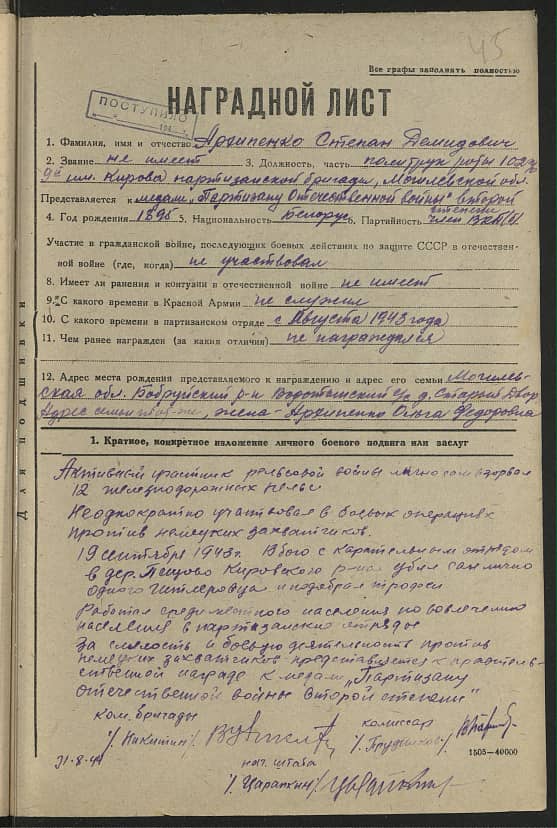 45
Все графы заполнять полностью
НАГРАДНОЙ ЛИСТ
ПОСТУПИЛО
1. Фамилия, имя и отчество Архипенко Степан Демидович
2. Звание не имеет 3. Должность, часть политрук роты 102
им. Кирова партизанской бригады, Могилевской обл.
Представляется к медали „Партизану Отечественной войны" второй
степени
4. Год рождения 1895 5. Национальность Белорус 6. Партийность член ВКП(б)
Участие в гражданской войне, последующих боевых действиях по защите СССР в отечествен-
ной войне (где, когда) не участвовал
8. Имеет ли ранения и контузии в отечественной войне не имеет
9. С какого времени в Красной Армии не служил
10. С какого времени в партизанском отряде с Августа 1943 года
11. Чем ранее награжден (за какия отличия) не награждался
12. Адрес места рождения представляемого к награждению и адрес его семьи Могилев-
ская обл. Бобруйский р-н с/с д. Старый Двор
Адрес семьи жена - Архипенко Ольга Федоровна
Для подшивки
1. Краткое, конкретное изложение личного боевого подвига или заслуг
Активный участник рельсовой войны лично сам взорвал
12 железнодорожных рельс
Неоднократно участвовал в боевых операциях
против немецких захватчиков.
19 сентября 1943 г. В бою с карательным отрядом
в дер. Кировского р-на убил сам лично
одного гитлеровца и подобрал трофеи
Работал среди местного населения по вовлечению
населения в партизанские отряды
За смелость и боевую деятельность против
немецких захватчиков представляется к правитель-
ственной награде к медали „Партизану
отечественной войны второй степени"
ком. бригады
/Никитин/
комиссар
/Прудников/
31-8-44
нач. штаба
/Царапкин/
1505—40000